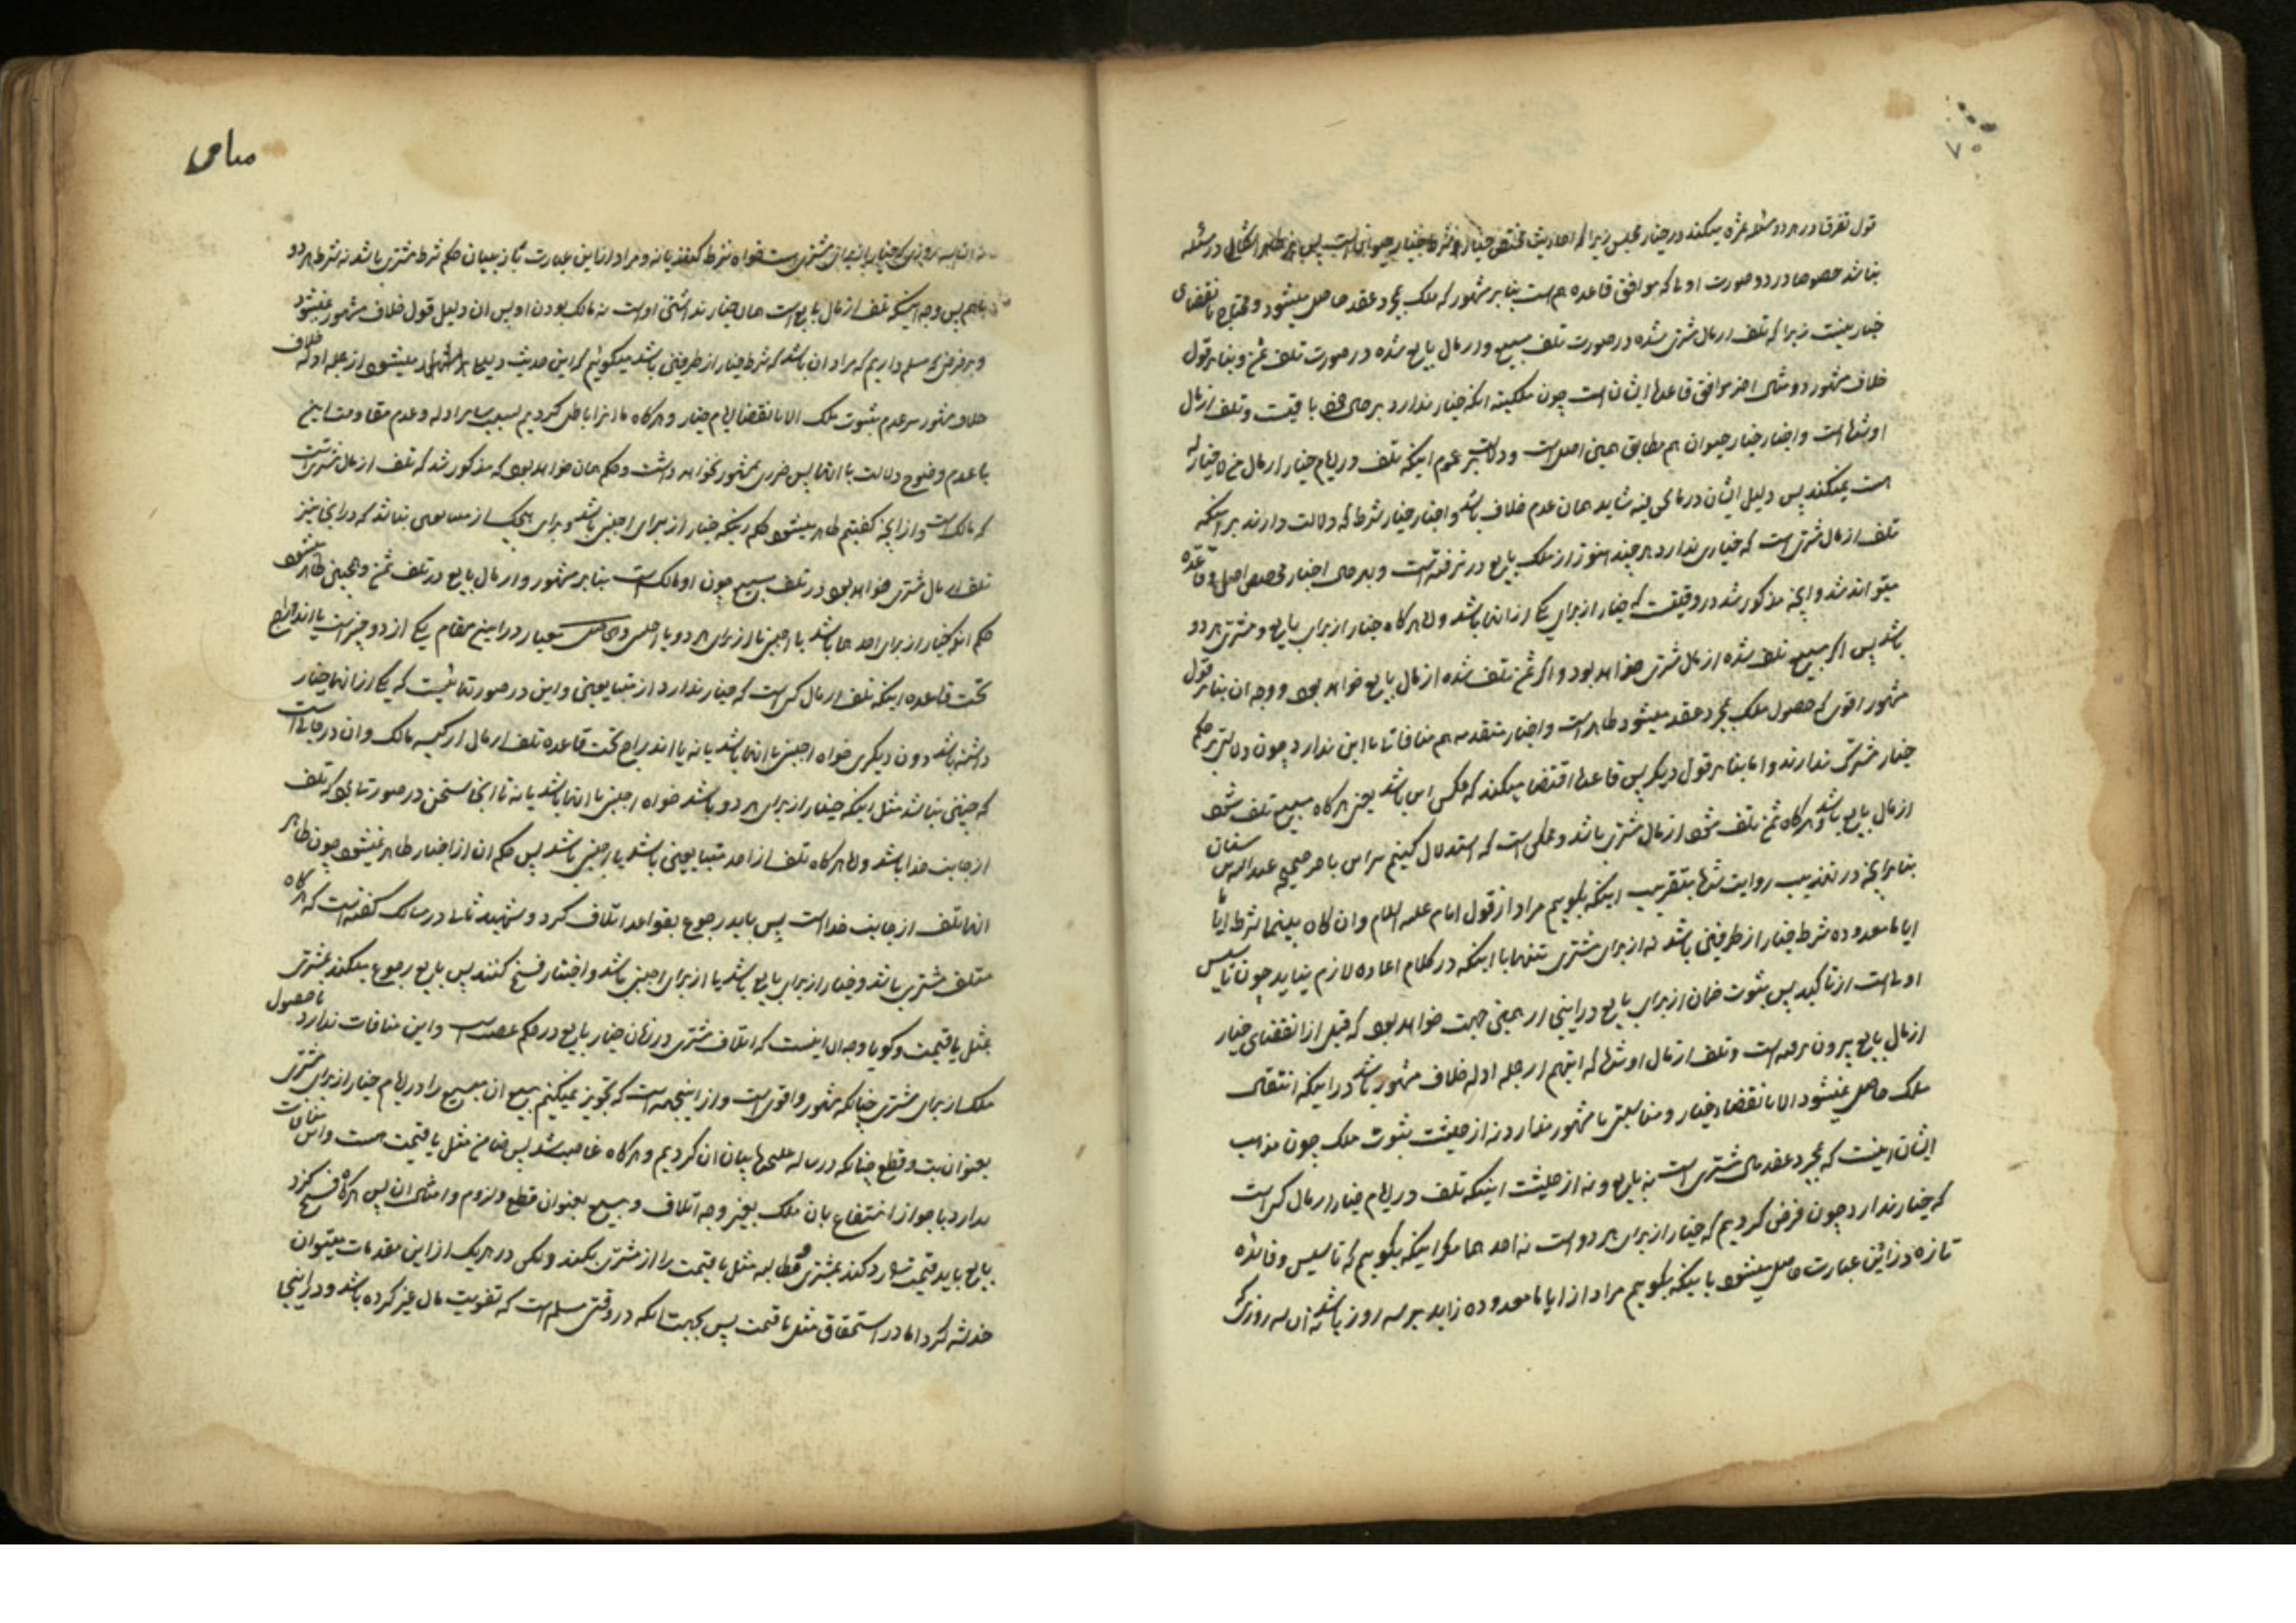 قول تفرقا در هر دو مسئله ثمره میکند در خیار مجلس زیرا که احادیث مختص خیار شرط خیار حیوان است پس اشکال در مسئله
نباشد خصوصا در دو صورت اولی که موافق قاعده هم است بنابر مشهور که ملک بمجرد عقد حاصل میشود و محتاج بانقضای
خیار نیست زیرا که تلف از مال مشتری شده در صورت تلف مبیع و از مال بایع شده در صورت تلف ثمن و بنابر قول
خلاف مشهور دو مثال اخر موافق قاعده ایشان است چون ملکیت انکه خیار ندارد بر حال خود باقیست و تلف از مال
او شده است و اخبار خیار حیوان هم مطابق همین اصل است و دلالت بر عموم اینکه تلف در ایام خیار از مال من لا خیار له
است نمیکند پس دلیل ایشان در شاید همان عدم خلاف باشد و اخبار خیار شرط که دلالت دارند بر اینکه
تلف از مال مشتری است که خیاری ندارد هر چند هنوز از ملک بایع در نرفته است و بهر حال اخبار مخصص اصل و قاعده
میتواند شد و انچه مذکور شد در وقتیست که خیار از برای یکی از انها باشد و اما هر کاه خیار از برای بایع و مشتری هر دو
باشد پس اگر مبیع تلف شده از مال مشتری خواهد بود و اگر ثمن تلف شده از مال بایع خواهد بود و وجه ان بنابر قول
مشهور اقوی که حصول ملک بمجرد عقد میشود ظاهر است و اخبار متقدمه هم منافاتی با این ندارد چون دلالتی بر حکم
خیار مشترک ندارند و اما بنابر قول دیگر پس قاعده اقتضا میکند که عکس این باشد یعنی هر کاه مبیع تلف شود
از مال بایع باشد و هر کاه ثمن تلف شود از مال مشتری باشد و ممکن است که استدلال کنیم بر این باخر صحیحه عبدالله بن سنان
بنابر انچه در تهذیب روایت شده بتقریب اینکه بگوییم مراد از قول امام علیه السلام و ان کان بینهما شرط ایاما
ایاما معدوده شرط خیار از طرفین باشد نه از برای مشتری تنها با اینکه در کلام اعاده لازم نیاید چون تاسیس
اولی است از تاکید پس ثبوت ضمان از برای بایع در اینجا از همین جهت خواهد بود که قبل از انقضای خیار
از مال بایع بیرون نرفته است و تلف از مال او شده که اینهم از جمله ادله خلاف مشهور باشد در اینکه انتقال
ملک حاصل نمیشود الا بانقضاء خیار و مناسبتی با مشهور ندارد نه از حیثیت ثبوت ملک چون مذهب
ایشان اینست که بمجرد عقد مال مشتری است نه بایع و نه از حیثیت اینکه تلف در ایام خیار از مال کسی است
که خیار ندارد چون فرض کردیم که خیار از برای هر دو است نه احدهما مگر اینکه بگوییم که تاسیس و فائده
تازه در این عبارت حاصل میشود باینکه بگوییم مراد از ایاما معدوده زاید بر سه روز باشد نه ان سه روزی که
سه روزی که خیار ان برای مشتری است خواه شرط کنند یا نه و مراد از این عبارت باز بیان حکم شرط مشتری باشد نه شرط هر دو
باهم پس وجه اینکه تلف از مال بایع است همان خیار نداشتن او است نه مالک بودن او پس ان دلیل قول خلاف مشهور نمیشود
و بر فرض که مسلم داریم که مراد ان باشد که شرط خیار از طرفین باشد میگوئیم که این حدیث از جمله ادله خلاف
خلاف مشهور بر عدم ثبوت ملک الا بانقضا ایام خیار و هر کاه ما انرا باطل کردیم بسبب سایر ادله و عدم مقاومت این
با عدم وضوح دلالت با انها پس ضرری بمشهور نخواهد داشت و حکم همان خواهد بود که مذکور شد که تلف از مال مشتریست
که مالک است و از انچه گفتیم ظاهر میشود حکم اینکه خیار از برای اجنبی باشد و برای هیچیک از متبایعین نباشد که در اینجا نیز
تلف از مال مشتری خواهد بود در تلف مبیع چون او مالک است بنابر مشهور و از مال بایع در تلف ثمن و همچنین ظاهر میشود
حکم انکه خیار از برای احدهما باشد با اجنبی یا از برای هر دو با اجنبی و حاصل معیار در این مقام یکی از دو چیز است یا اندراج
تحت قاعده اینکه تلف از مال کسی است که خیار ندارد از متبایعین و این در صورتهائیست که یکی از انها خیار
داشته باشد دون دیگری خواه اجنبی با انها باشد یا نه یا اندراج تحت قاعده تلف از مال از کیسه مالک و ان در جائی است
که چنین نباشد مثل اینکه خیار از برای هر دو باشد خواه اجنبی با انها باشد یا نه تا اینجا سخن در صورتهائی بود که تلف
از جانب خدا باشد و اما هر کاه تلف از احد متبایعین باشد یا اجنبی باشد پس حکم ان از اخبار ظاهر نمیشود چون ظاهر
انها تلف از جانب خدا است پس باید رجوع بقواعد اتلاف کرد و شهید ثانی در مسالک گفته است که هر کاه
متلف مشتری باشد و خیار از برای بایع باشد یا از برای اجنبی باشد و اختیار فسخ کنند پس بایع رجوع میکند بمشتری
بمثل یا قیمت و گویا وجه ان اینست که اتلاف مشتری در زمان خیار بایع در حکم غصب است و این منافات ندارد با حصول
ملک از برای مشتری چنانکه مشهور و اقوی است و از اینجهت است که تجویز نمیکنیم بیع ان مبیع را در ایام خیار از برای مشتری
بعنوان بت و قطع چنانکه در رساله علیحده بیان ان کردیم و هر کاه غاصب شد پس ضامن مثل یا قیمت هست و این منافات
ندارد با جواز انتفاع بان ملک بغیر وجه اتلاف و بیع بعنوان قطع و لزوم و امثال ان پس هر کاه فسخ کرد
بایع باید قیمت را رد کند بمشتری و مطالبه مثل یا قیمت را از مشتری بکند و لکن در هر یک از این مقدمات میتوان
خدشه کرد اما در استحقاق مثل یا قیمت پس بجهت انکه در وقتی مسلم است که تفویت مال غیر کرده باشد و در اینجا